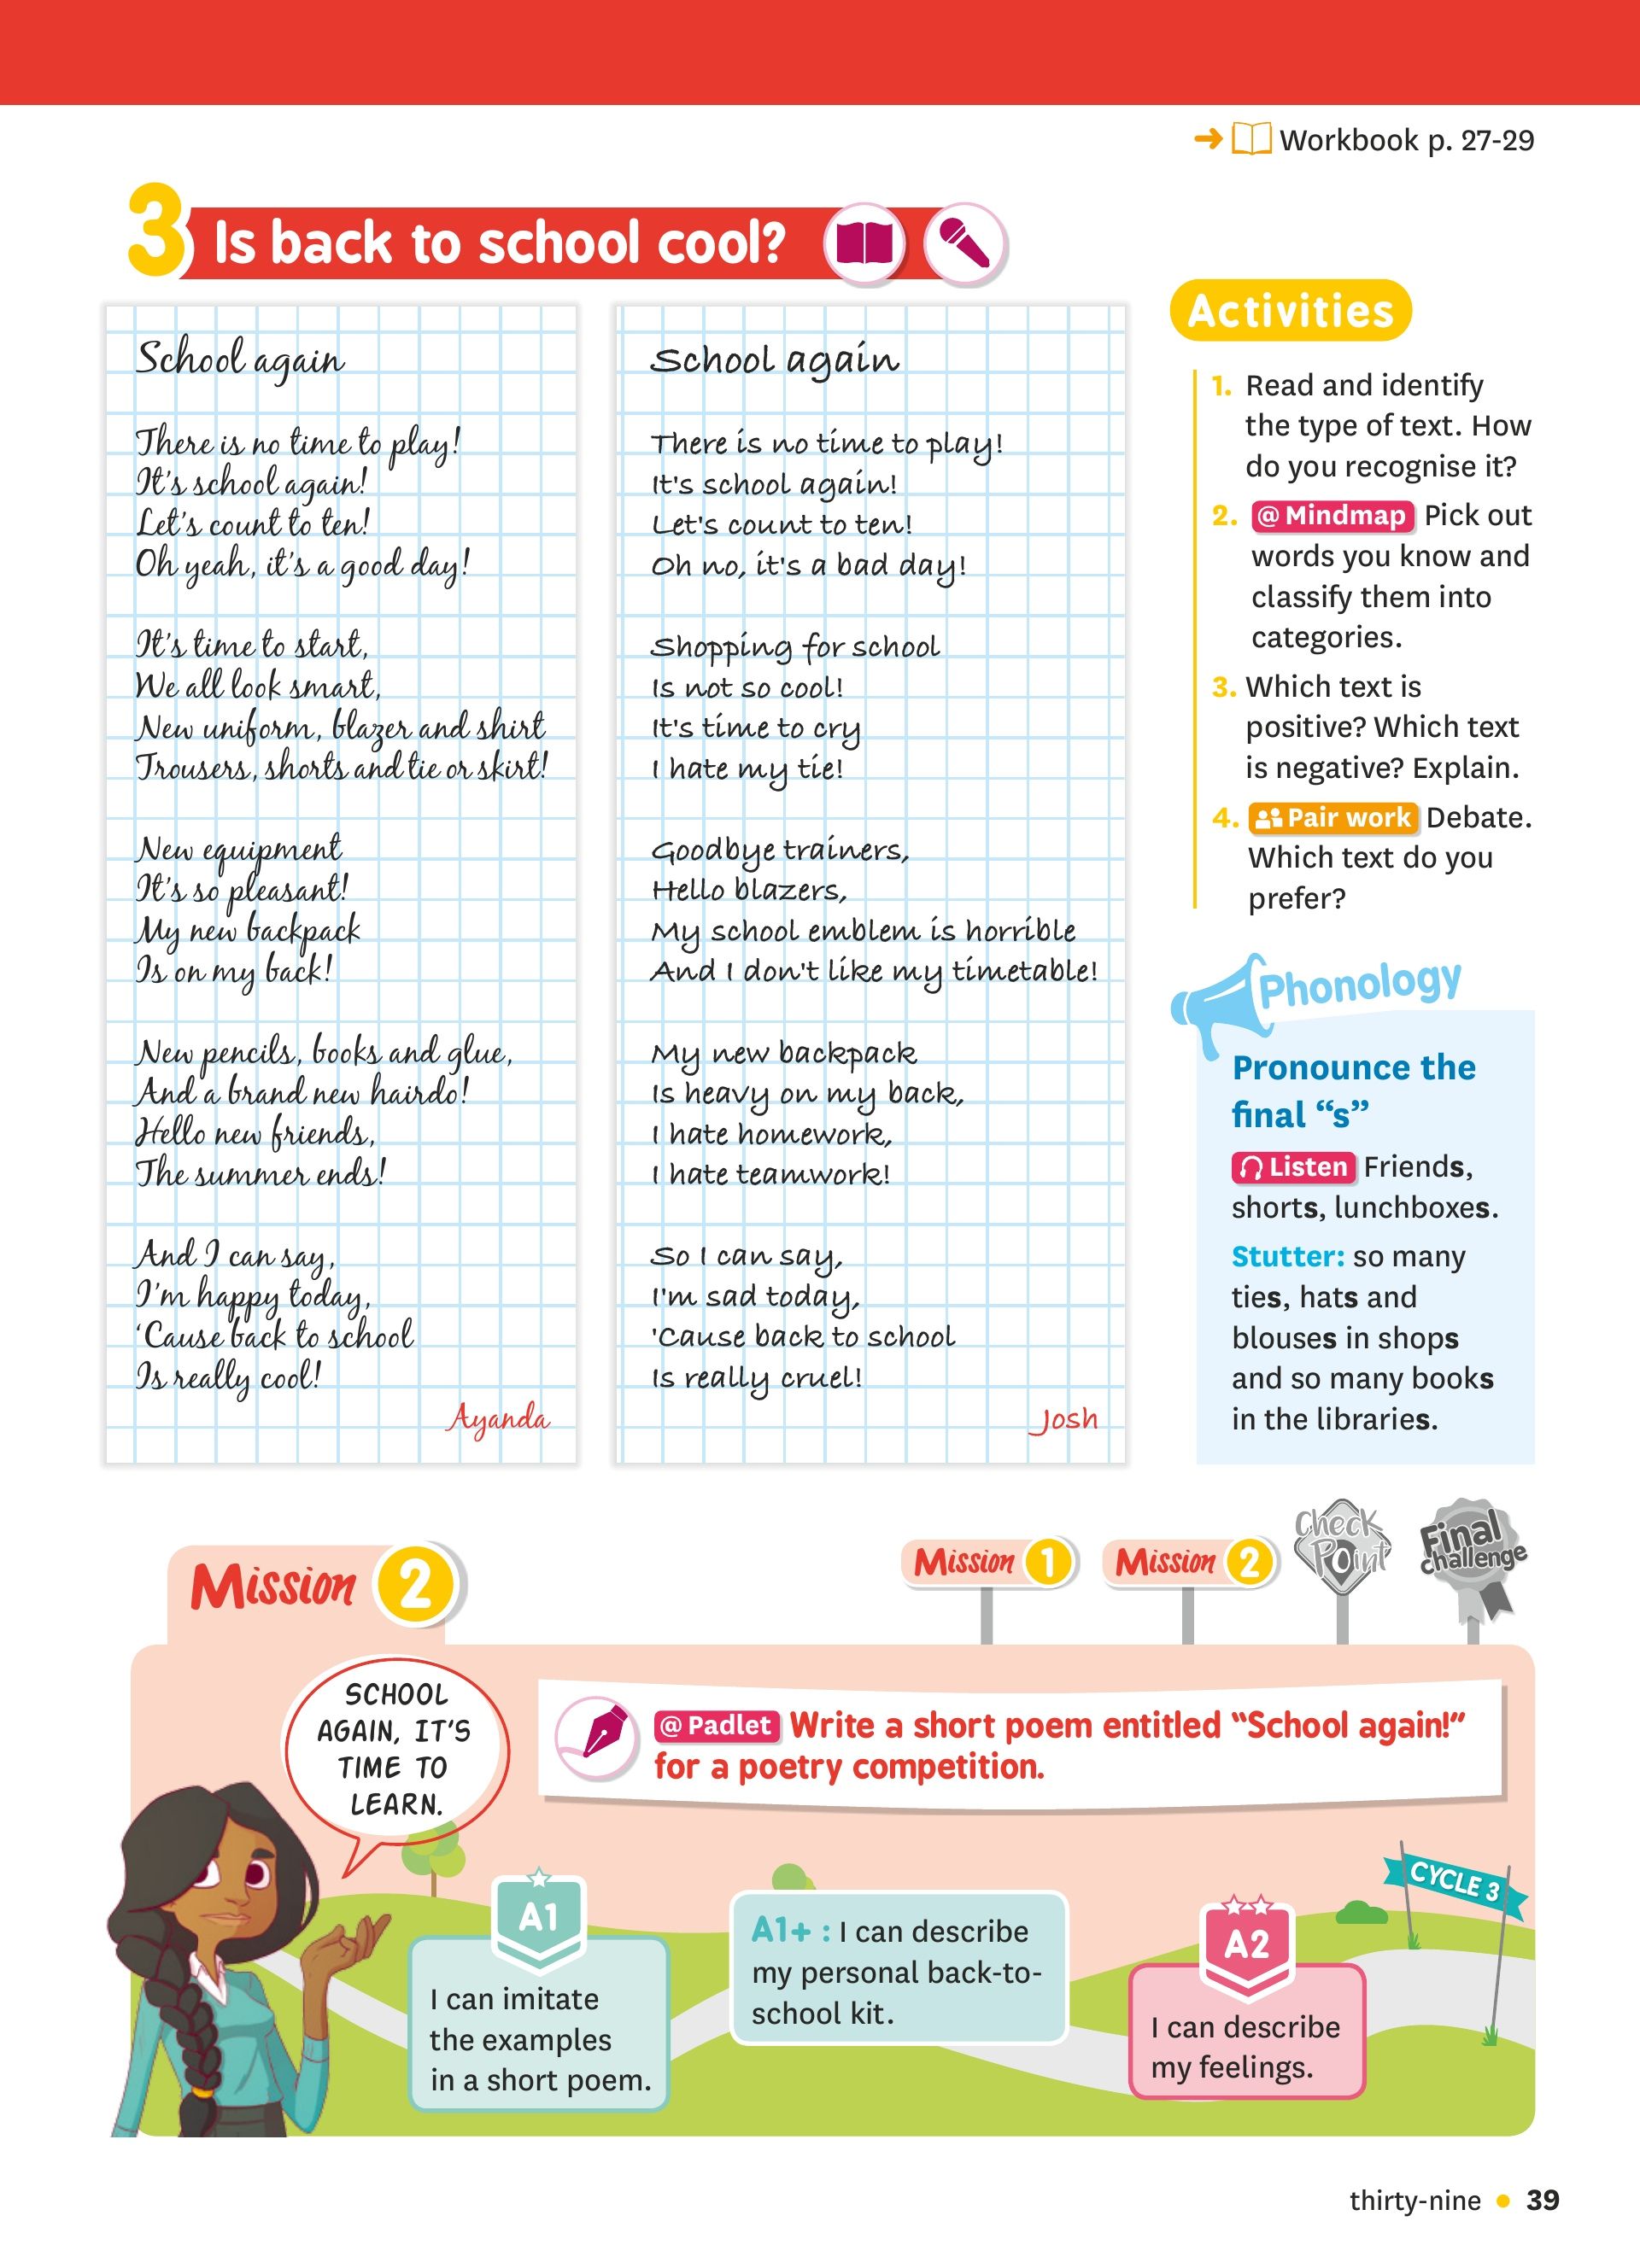 Workbook p. 27-29
3 Is back to school cool?
School again
There is no time to play!
It's school again!
Let's count to ten!
Oh yeah, it's a good day!
It's time to start,
We all look smart,
New uniform, blazer and shirt
Trousers, shorts and tie or skirt!
New equipment
It's so pleasant!
My new backpack
Is on my back!
New pencils, books and glue,
And a brand new hairdo!
Hello new friends,
The summer ends!
And I can say,
I'm happy today,
'Cause back to school
Is really cool!
Ayanda
School again
There is no time to play!
It's school again!
Let's count to ten!
Oh no, it's a bad day!
Shopping for school
Is not so cool!
It's time to cry
I hate my tie!
Goodbye trainers,
Hello blazers,
My school emblem is horrible
And I don't like my timetable!
My new backpack
Is heavy on my back,
I hate homework,
I hate teamwork!
So I can say,
I'm sad today,
'Cause back to school
Is really cruel!
Josh
Activities
1. Read and identify
the type of text. How
do you recognise it?
2. @ Mindmap Pick out
words you know and
classify them into
categories.
3. Which text is
positive? Which text
is negative? Explain.
4. Pair work Debate.
Which text do you
prefer?
Phonology
Pronounce the
final “s”
Listen Friends,
shorts, lunchboxes.
Stutter: so many
ties, hats and
blouses in shops
and so many books
in the libraries.
Mission 2
Mission 1
Mission 2
Check Point
Final challenge
SCHOOL
AGAIN, IT'S
TIME TO
LEARN.
@ Padlet Write a short poem entitled “School again!”
for a poetry competition.
A1
I can imitate
the examples
in a short poem.
A1+ : I can describe
my personal back-to-
school kit.
A2
I can describe
my feelings.
CYCLE 3
thirty-nine • 39